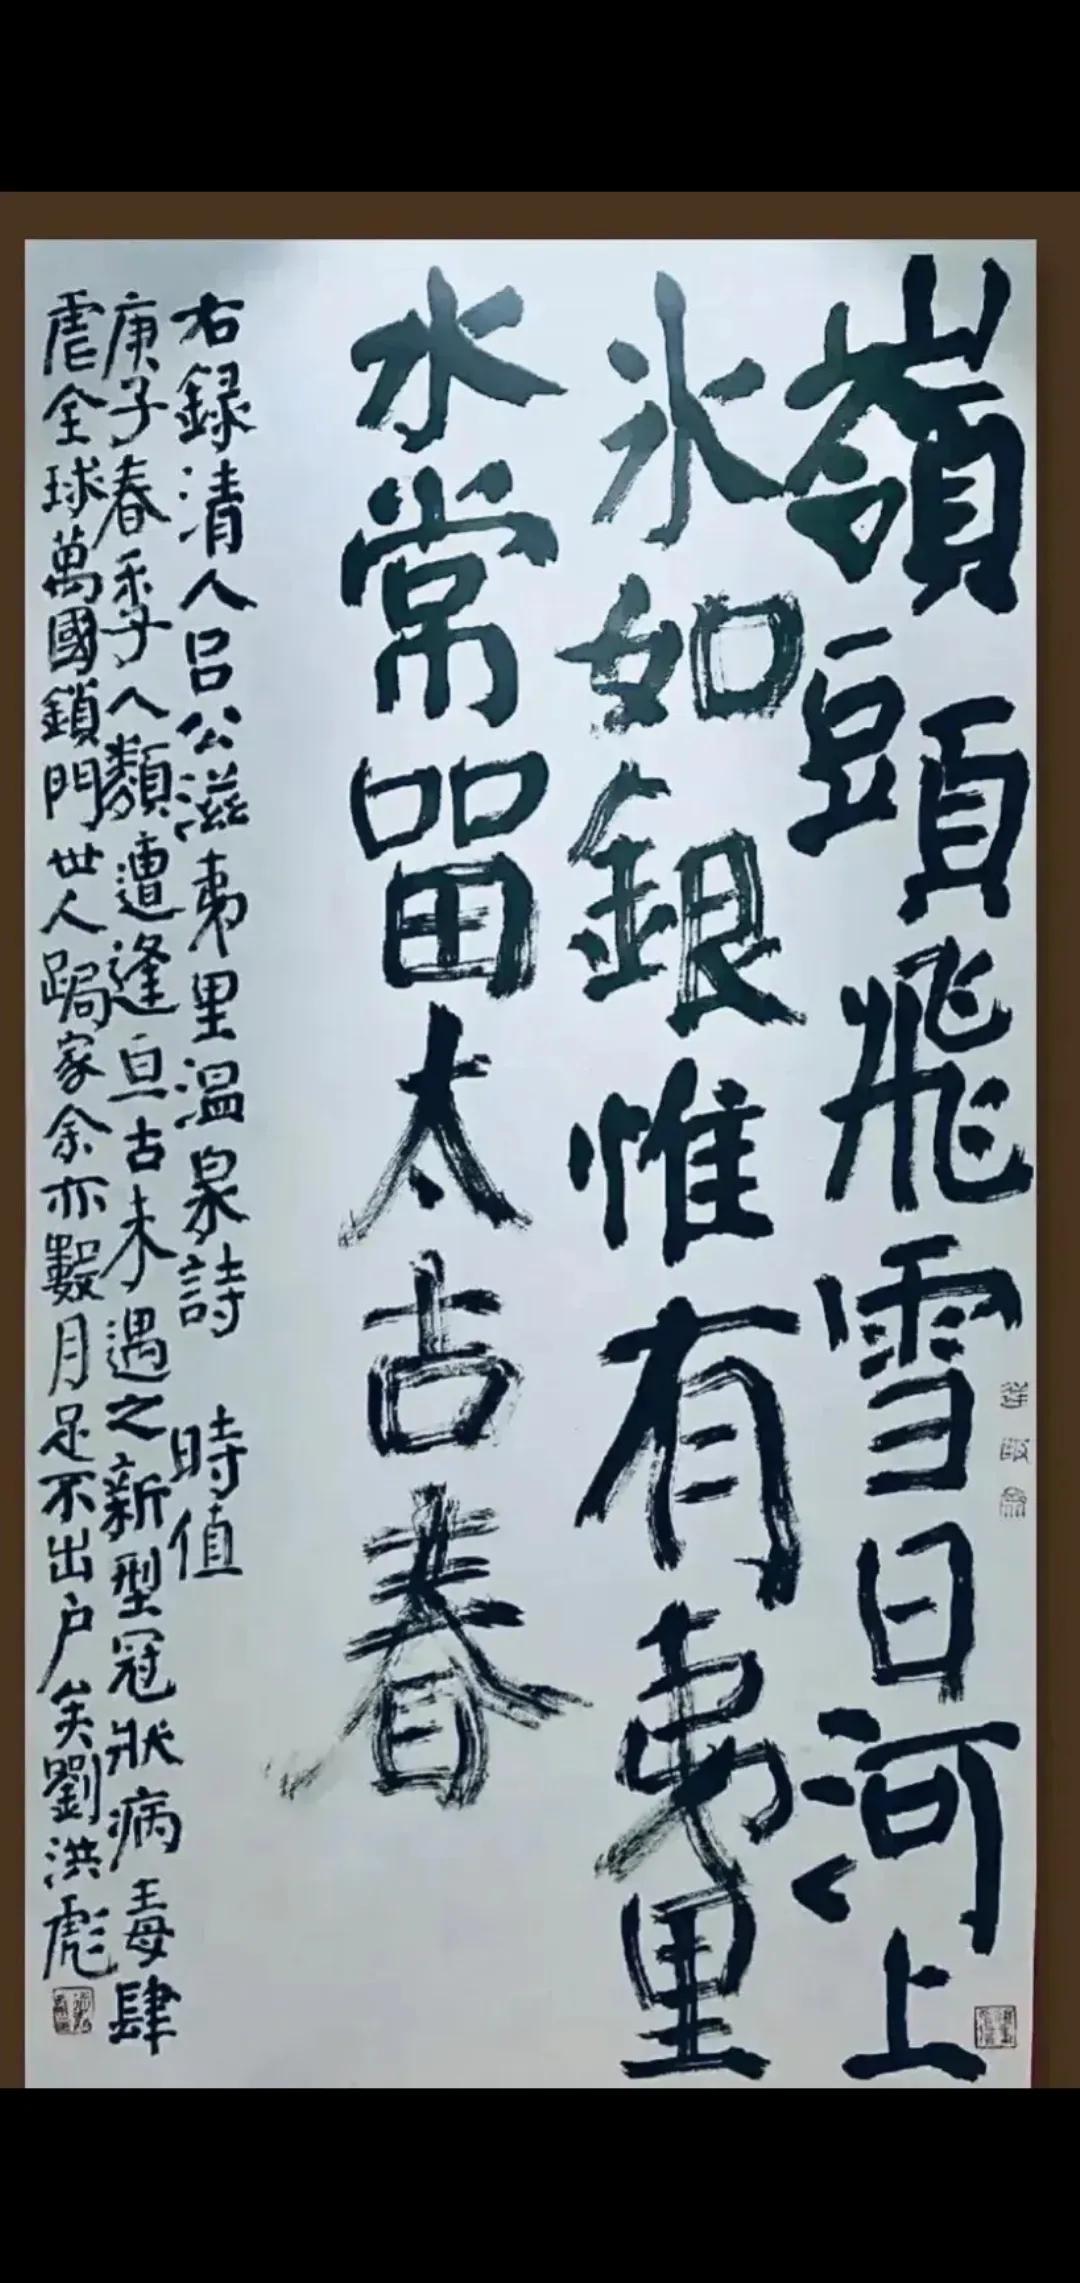 嶺頭飛雪日河上
氷如銀惟有夷里
水常留太古春
右録清人呂公滋夷里温泉詩 時值
庚子春季人類遭逢亘古未遇之新型冠狀病毒肆
虐全球萬國鎖門世人跼家余亦數月足不出户矣劉洪彪